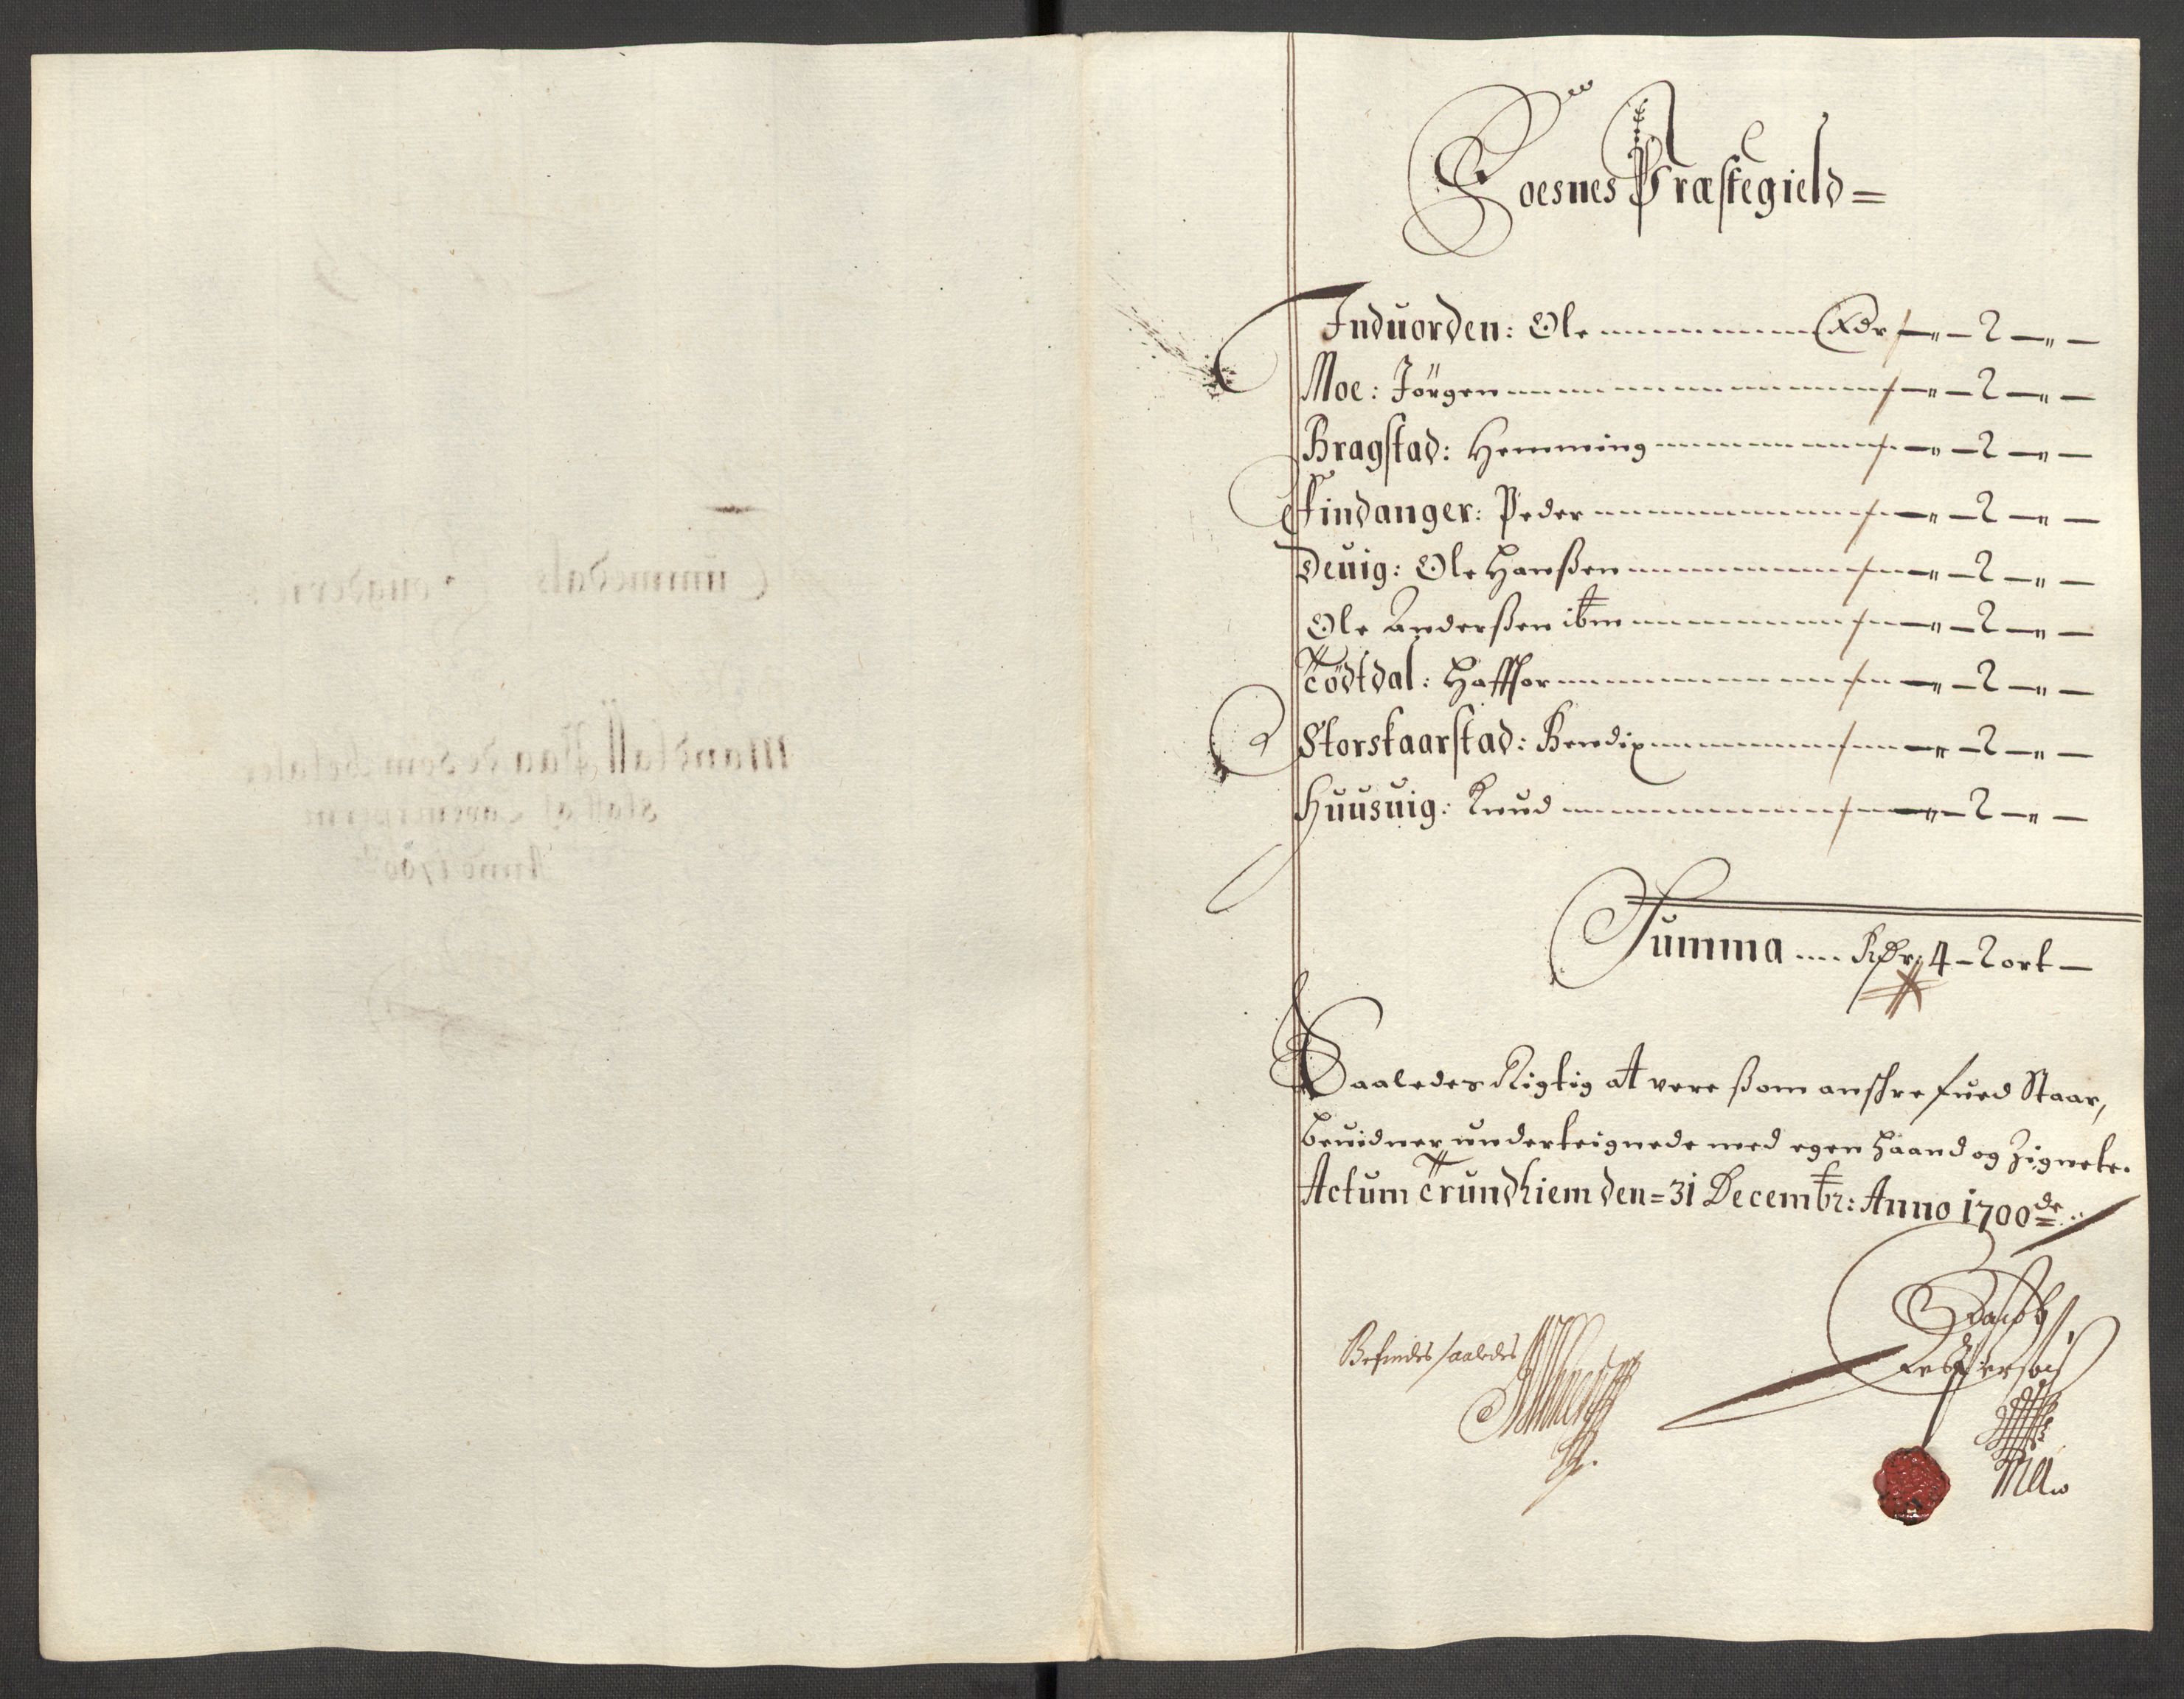 Foesnes Præstegield =
Induorden: Ole ---------- Rdr --„--2--„--
Moe: Jörgen ---------- --„--2--„--
Bragstad: Hemming ---------- --„--2--„--
Findanger: Peder ---------- --„--2--„--
Deuig: Ole Hanßen ---------- --„--2--„--
Ole Anderßen ibm ---------- --„--2--„--
Tödtdal: Haffor ---------- --„--2--„--
Storskaarstad: Bendix ---------- --„--2--„--
Huusuig: Knud ---------- --„--2--„--
Summa .... Rdr 4 - 2 ort -
Saaledes Rigtig at vere ßom anskrefued Staar,
beuidner underteignede med egen haand og Zignete.
Actum Trundhiem den = 31 Decembr: Anno 1700de
Befindes saaledes